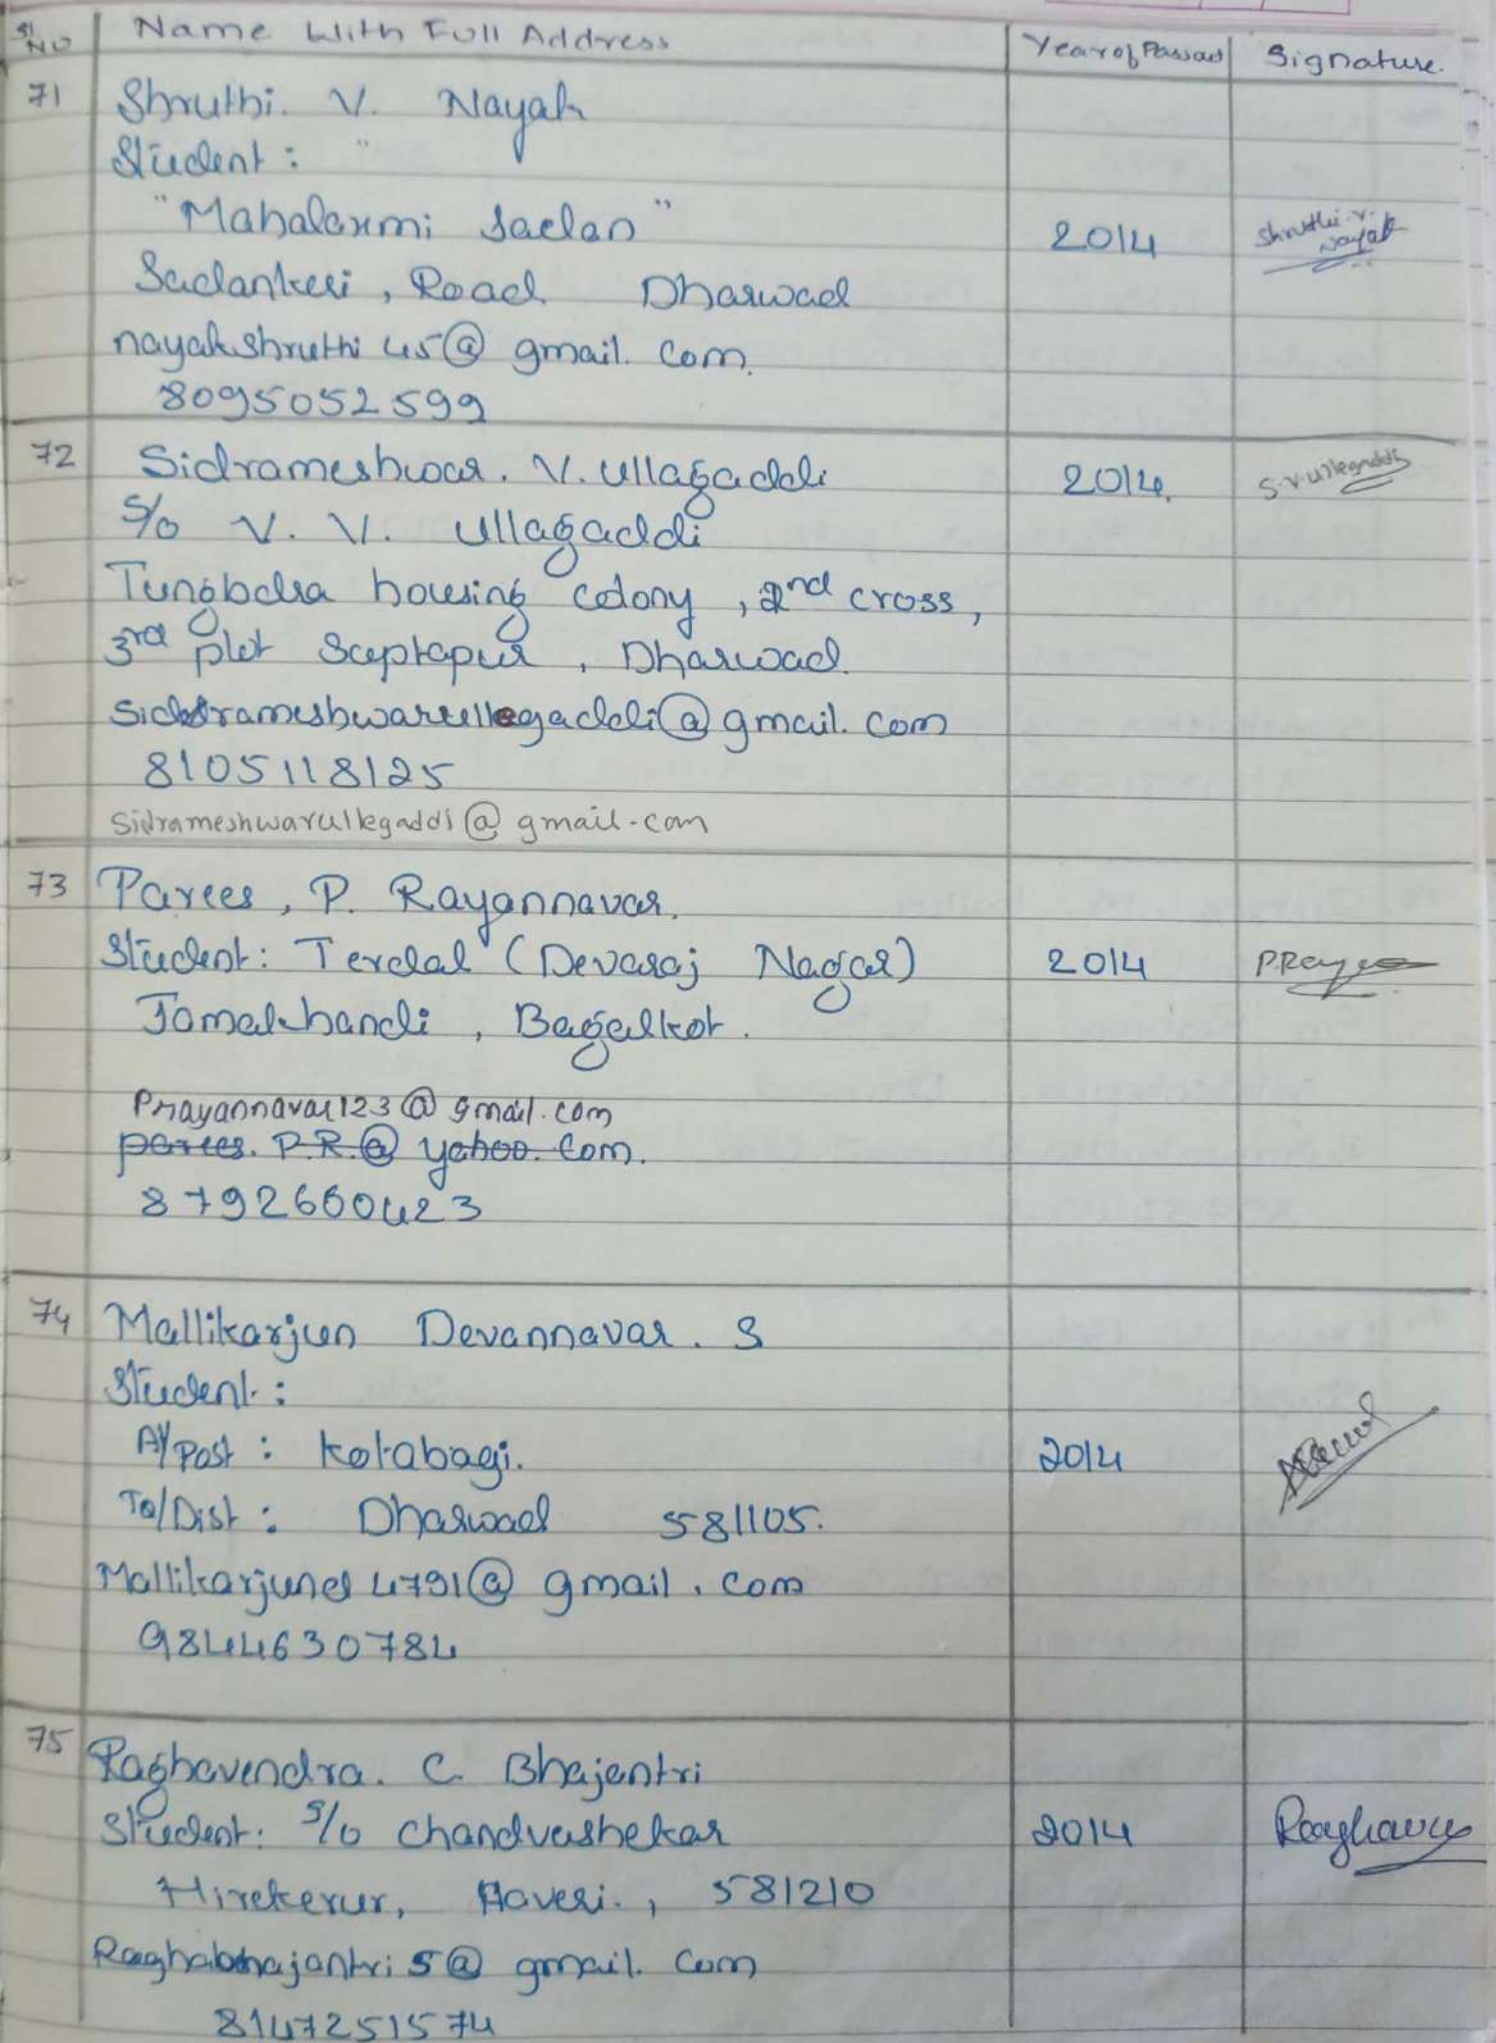 Sl No Name With Full Address Year of Passed Signature.
71 Shruthi. V. Nayak
Student : "
"Mahalaxmi Sadan" 2014 Shruthi.V. Nayak
Sadankeri, Road Dharwad
nayakshruthi45@gmail.com.
8095052599
72 Sidrameshwar. V. Ullagaddi 2014. S.V.Ullegaddi
S/o V. V. Ullagaddi
Tungbdra housing colony, 2nd cross,
3rd plot Saptapur, Dharwad.
rameshwarullegaddi@gmail.com
8105118125
Sidrameshwarullegaddi@gmail.com
73 Parees, P. Rayannavar.
Student: Terdal (Devaraj Nagar) 2014
Jamakhandi, Bagalkot.
Prayannavar123@gmail.com
parees.P.R.@yahoo.com.
8792660423
74 Mallikarjun Devannavar. S
Student :
A/Post : Kotabagi. 2014
Tq/Dist : Dharwad 581105.
Mallikarjuned4791@gmail.com
9844630784
75 Raghavendra. C. Bhajentri
Student: S/o Chandrashekar 2014
Hirekerur, Haveri., 581210
5@gmail.com
8147251574